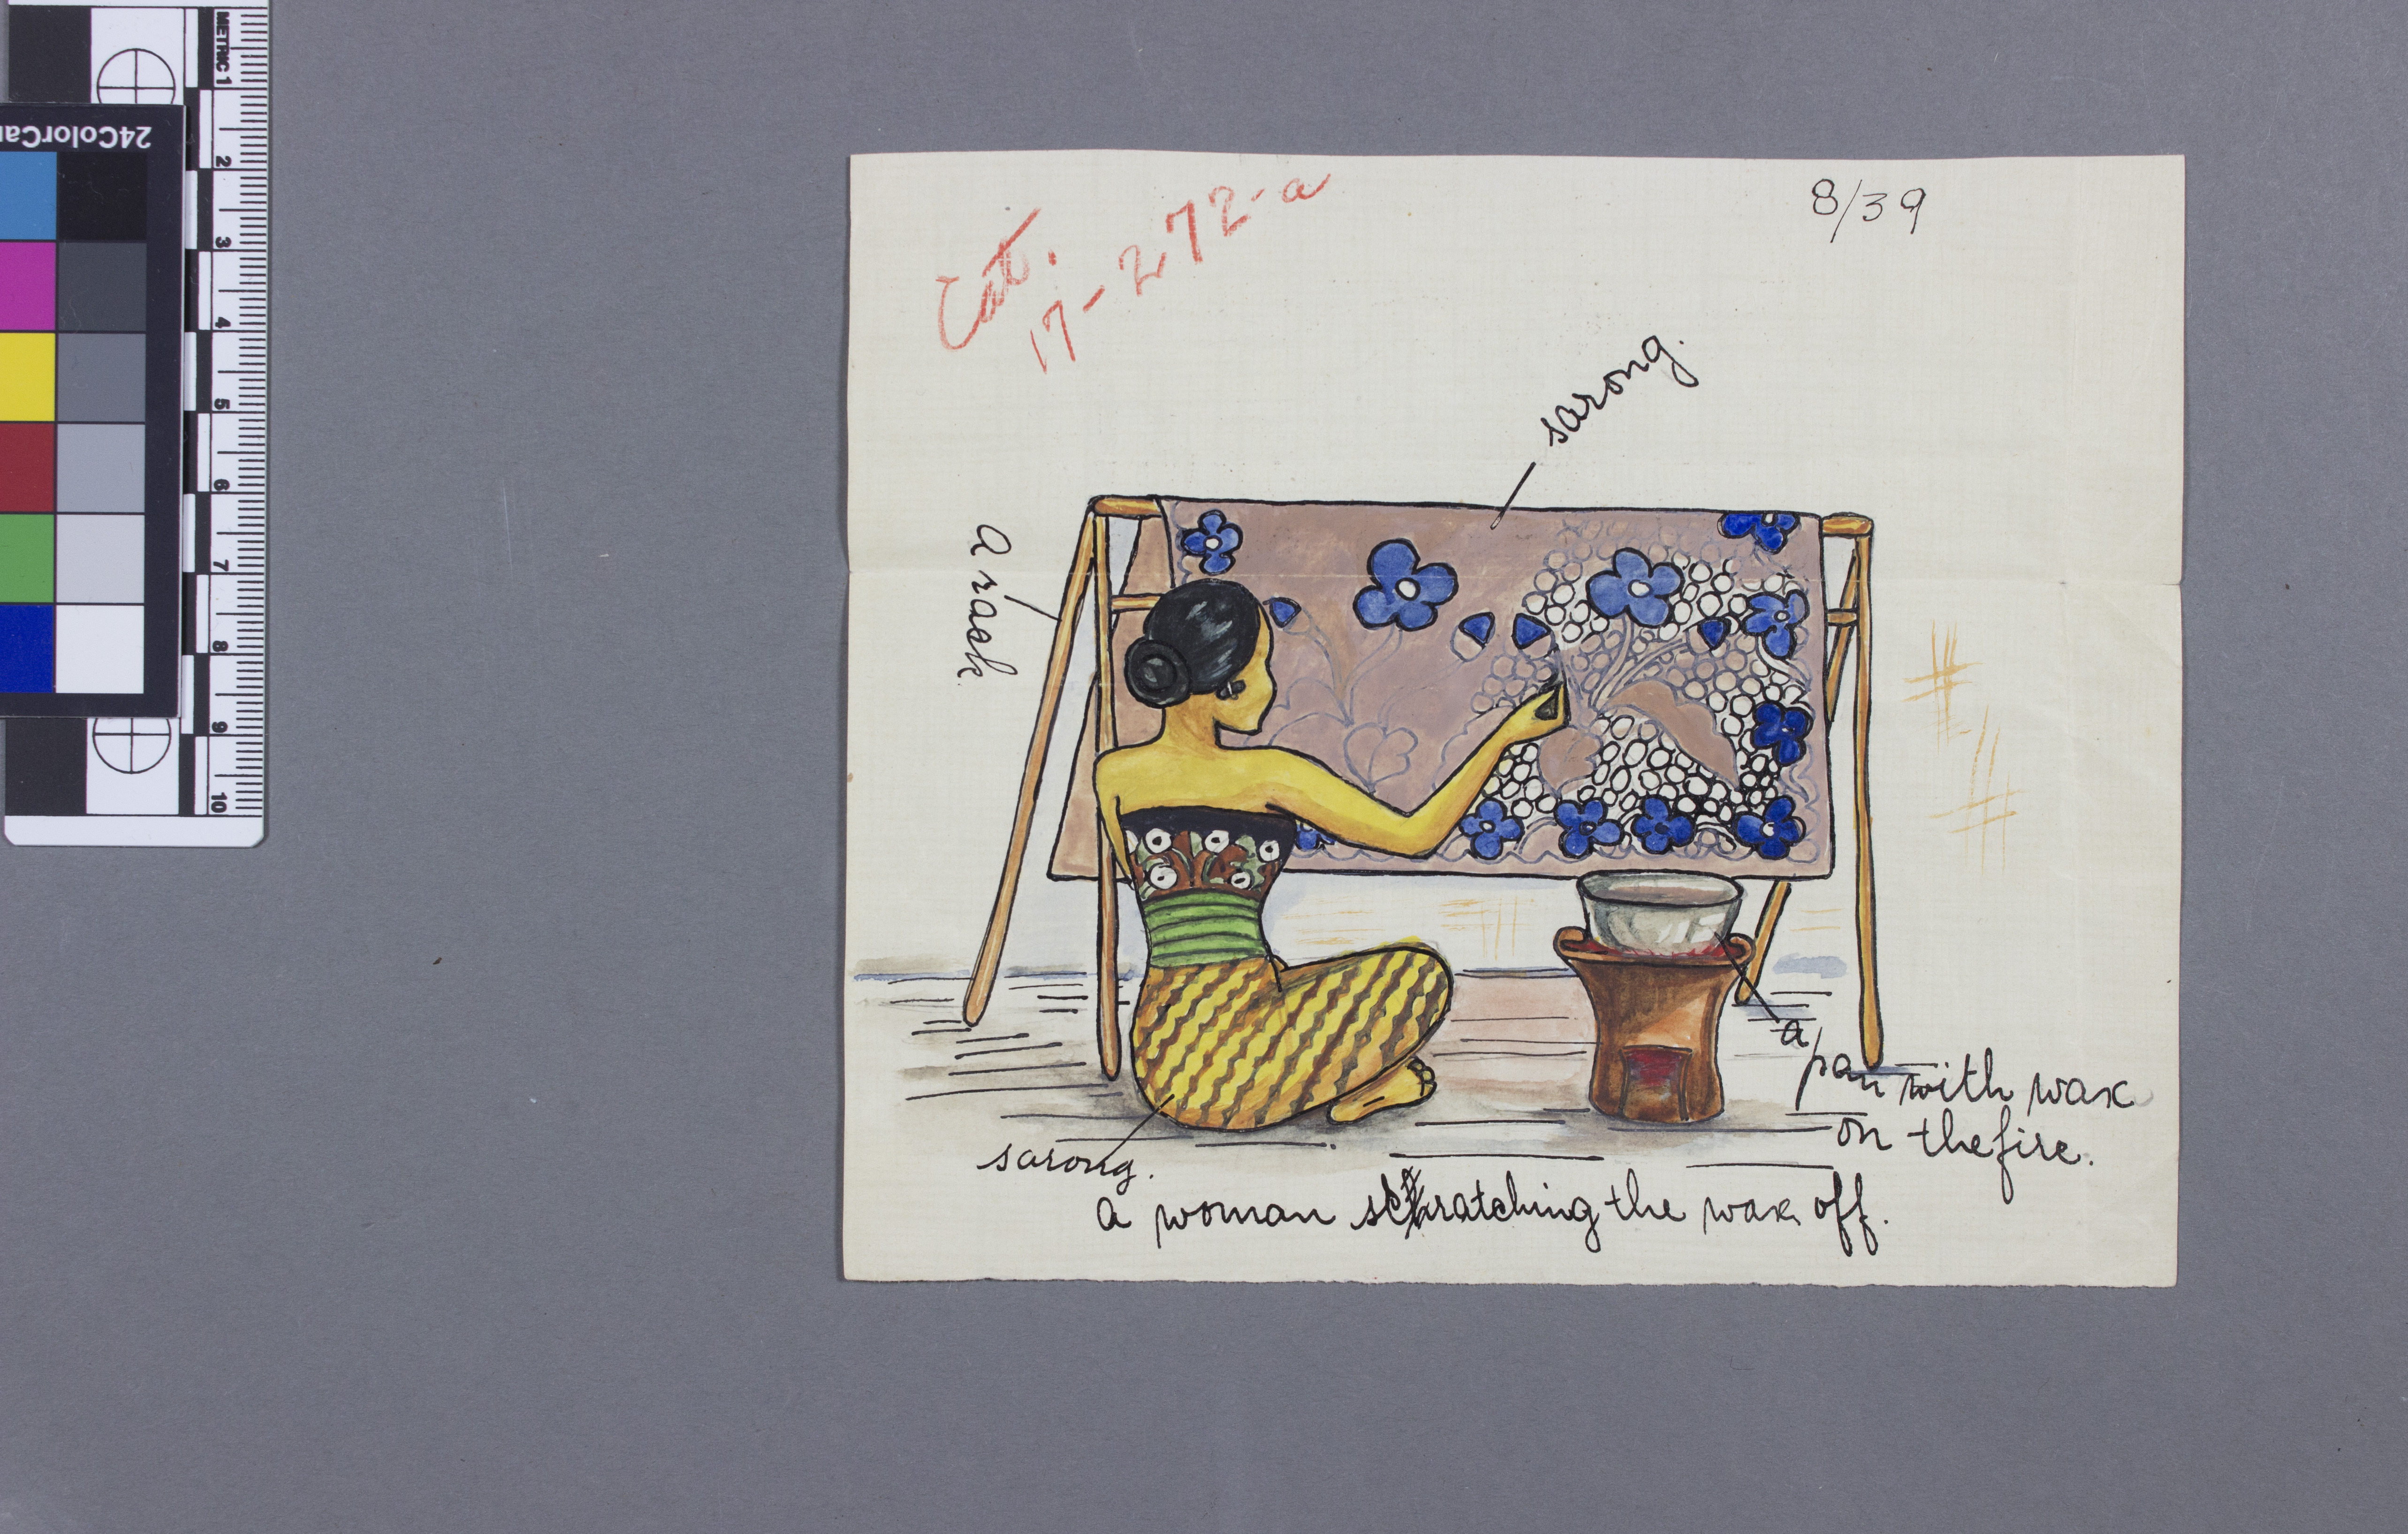 METRIC 1
2
3
4
5
6
7
8
9
10
24ColorCa
Cat.
17-272-a
8/39
sarong.
a rack.
a
pan with wax
on the fire.
sarong.
a woman scratching the wax off.